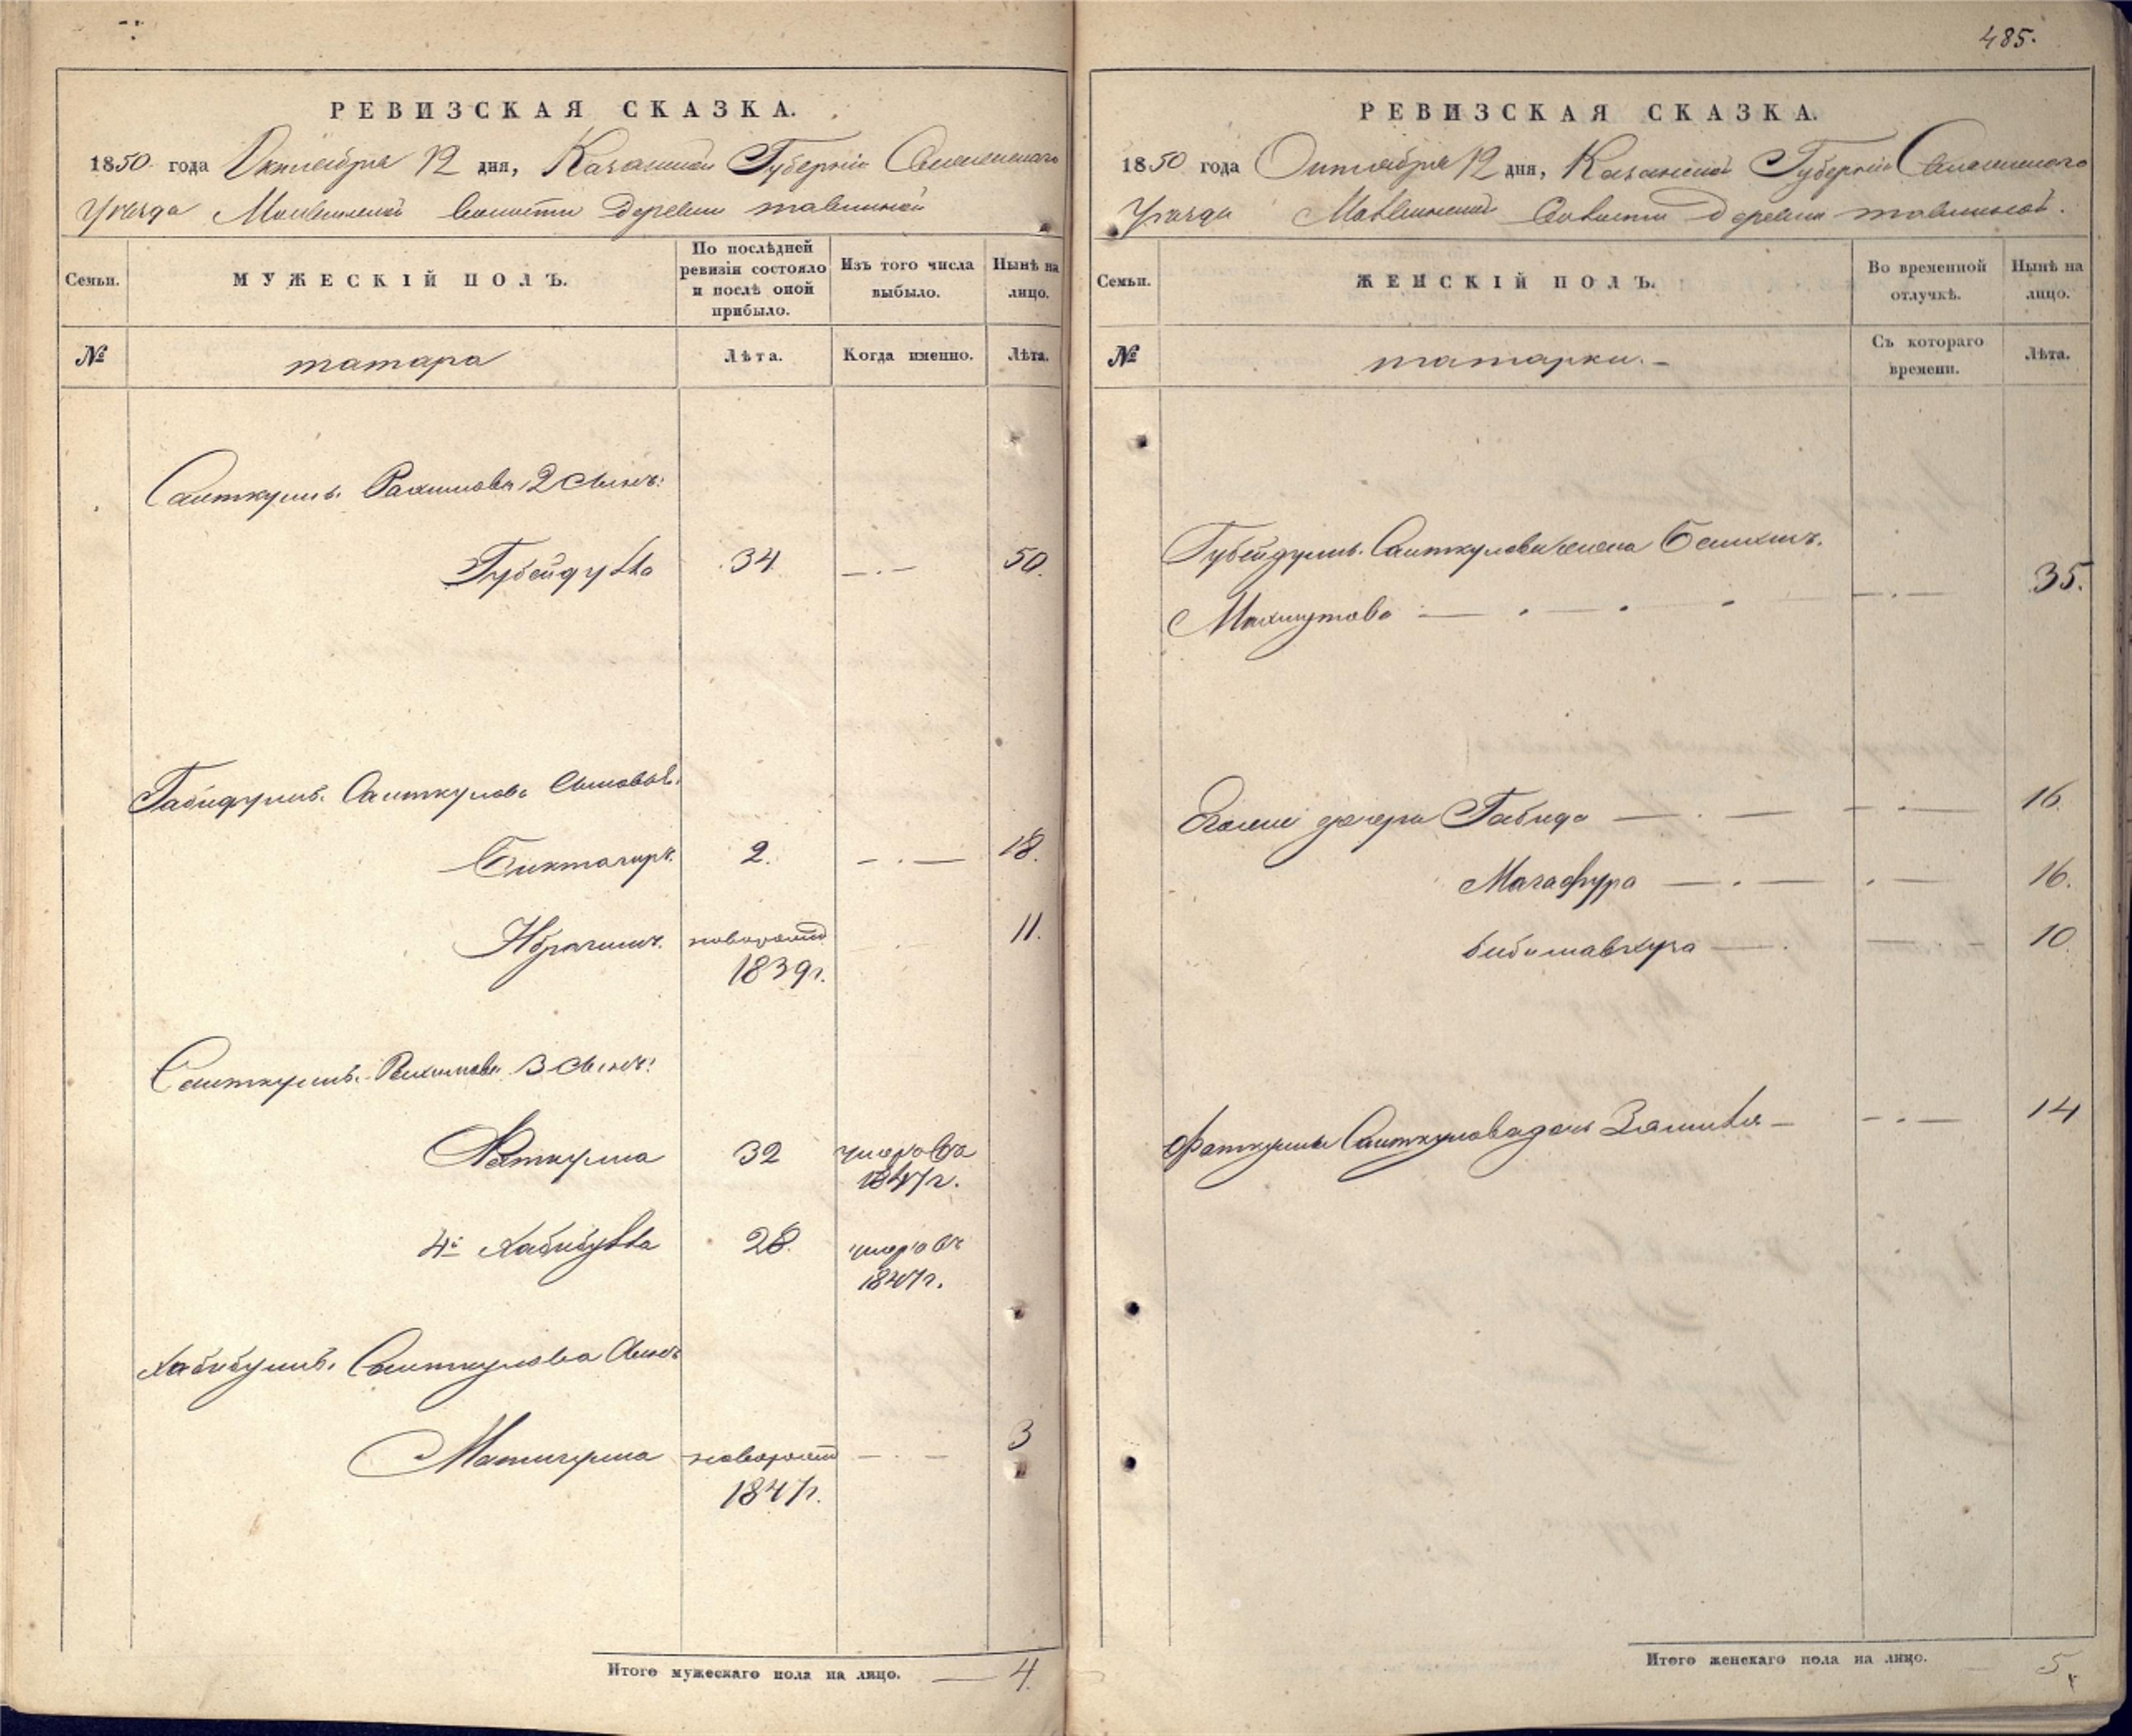 485.
РЕВИЗСКАЯ СКАЗКА.
1850 года Октября 12 дня, Казанской Губернiи
Уезда волости Деревни
Семьи.
МУЖЕСКІЙ ПОЛЪ.
По послѣдней ревизіи состояло и послѣ оной прибыло.
Изъ того числа выбыло.
Нынѣ на лицо.
№
татара
Лѣта.
Когда именно.
Лѣта.
Саиткулъ Рахимова 2 сынъ:
Губейдулла 34 —.— 50.
Габидулы Саиткулова сыновья:
Биктагиръ 2. —.— 18.
Ибрагимъ новорожд 11.
1839г.
Саиткулъ Рахимова 3 сынъ:
Фаткулла 32 умеръ въ
1847г.
4й Хабибулла 28. умеръ въ
1847г.
Хабибулы Саиткулова сынъ
новорожд —.— 3
1847г.
Итого мужескаго пола на лицо. — 4.
РЕВИЗСКАЯ СКАЗКА.
1850 года Октября 12 дня, Казанской Губернiи
Уезда волости Деревни
Семьи.
ЖЕНСКІЙ ПОЛЪ.
Во временной отлучкѣ.
Нынѣ на лицо.
№
татарки.—
Съ котораго времени.
Лѣта.
Губейдулы Саиткулова жена
Махмутова —.—.— —.— 35.
Егоже дочери Габида —.— —.— 16.
Магафура —.— .— 16.
—. —.— 10.
Фаткулы Саиткулова дочь — —.— 14
Итого женскаго пола на лицо. 5.